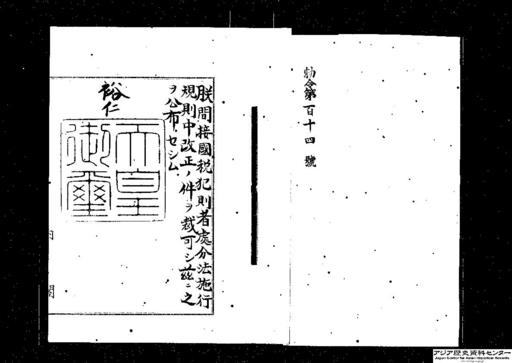 勅令第百十四號
朕間接國税犯則者處分法施行
規則中改正ノ件ヲ裁可シ茲ニ之
ヲ公布セシム
裕仁
天皇
御璽
内閣
アジア歴史資料センター
Japan Center for Asian Historical Records